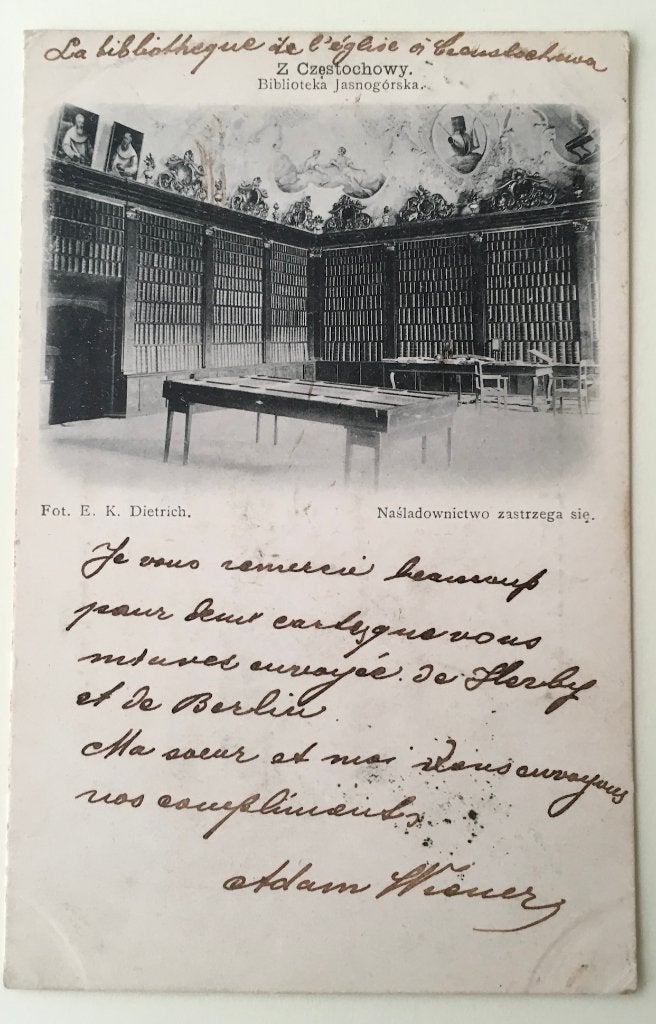 La bibliotheque de l'église à Czenstochowa
Z Częstochowy.
Biblioteka Jasnogórska.
Fot. E. K. Dietrich.
Naśladownictwo zastrzega się.
Je vous remercie beaucoup
pour deux cartes que vous
m'avez envoyée de Herby
et de Berlin
Ma soeur et moi vous envoyons
nos compliments
Adam Wiener